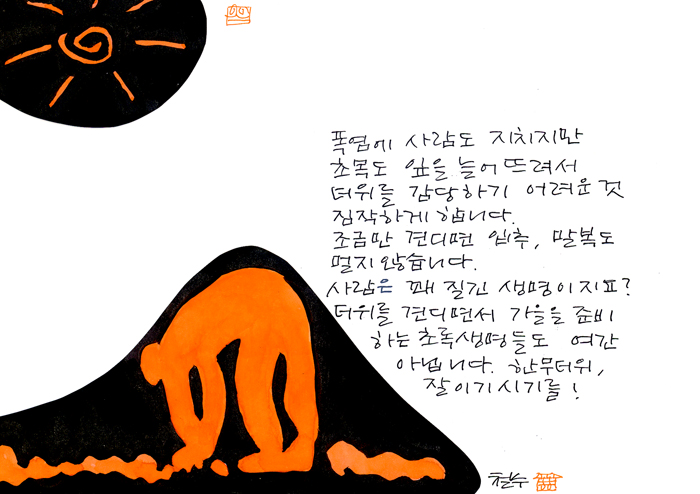 폭염에 사람도 지치지만
초목도 잎을 늘어뜨려서
더위를 감당하기 어려운 것
짐작하게 합니다.
조금만 견디면 입추, 말복도
멀지 않습니다.
사람은 꽤 질긴 생명이지요?
더위를 견디면서 가을을 준비
하는 초록생명들도 여간
아닙니다. 한무더위,
잘 이기시기를!
철수